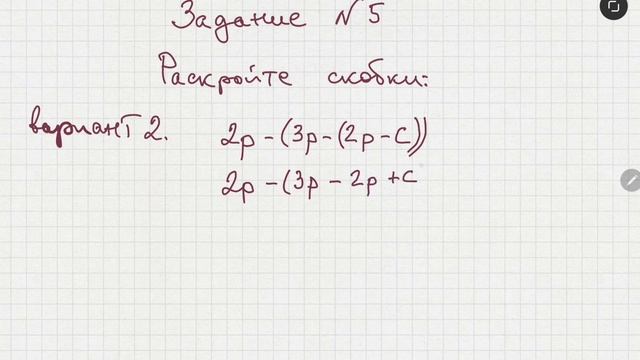 Задание N 5
Раскройте скобки:
вариант 2. 2p-(3p-(2p-c))
2p-(3p-2p+c